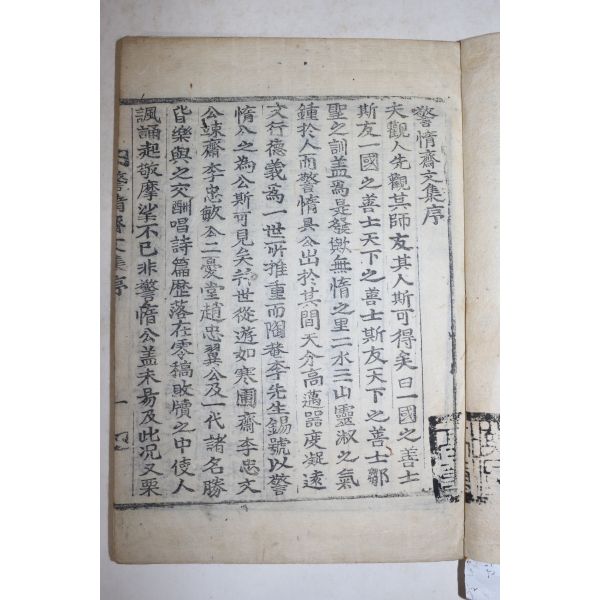 警惰齋文集序
夫觀人先觀其師友其人斯可得矣曰一國之善士
斯友一國之善士天下之善士斯友天下之善士鄒
聖之訓盖爲是發歟無惰之里二水三山靈淑之氣
鍾於人而警惰具公出於其間天分高邁器度凝遠
文行德義爲一世所推重而陶菴李先生錫號以警
惰公之爲公斯可見矣 世從遊如寒圃齋李忠文
公竦齋李忠敏公二憂堂趙忠翼公及一代諸名勝
皆樂與之交酬唱詩篇歷落在零稿敗牘之中使人
諷誦起敬摩挲不已非警惰公盖未易及此况又栗
警惰齋文集序 一